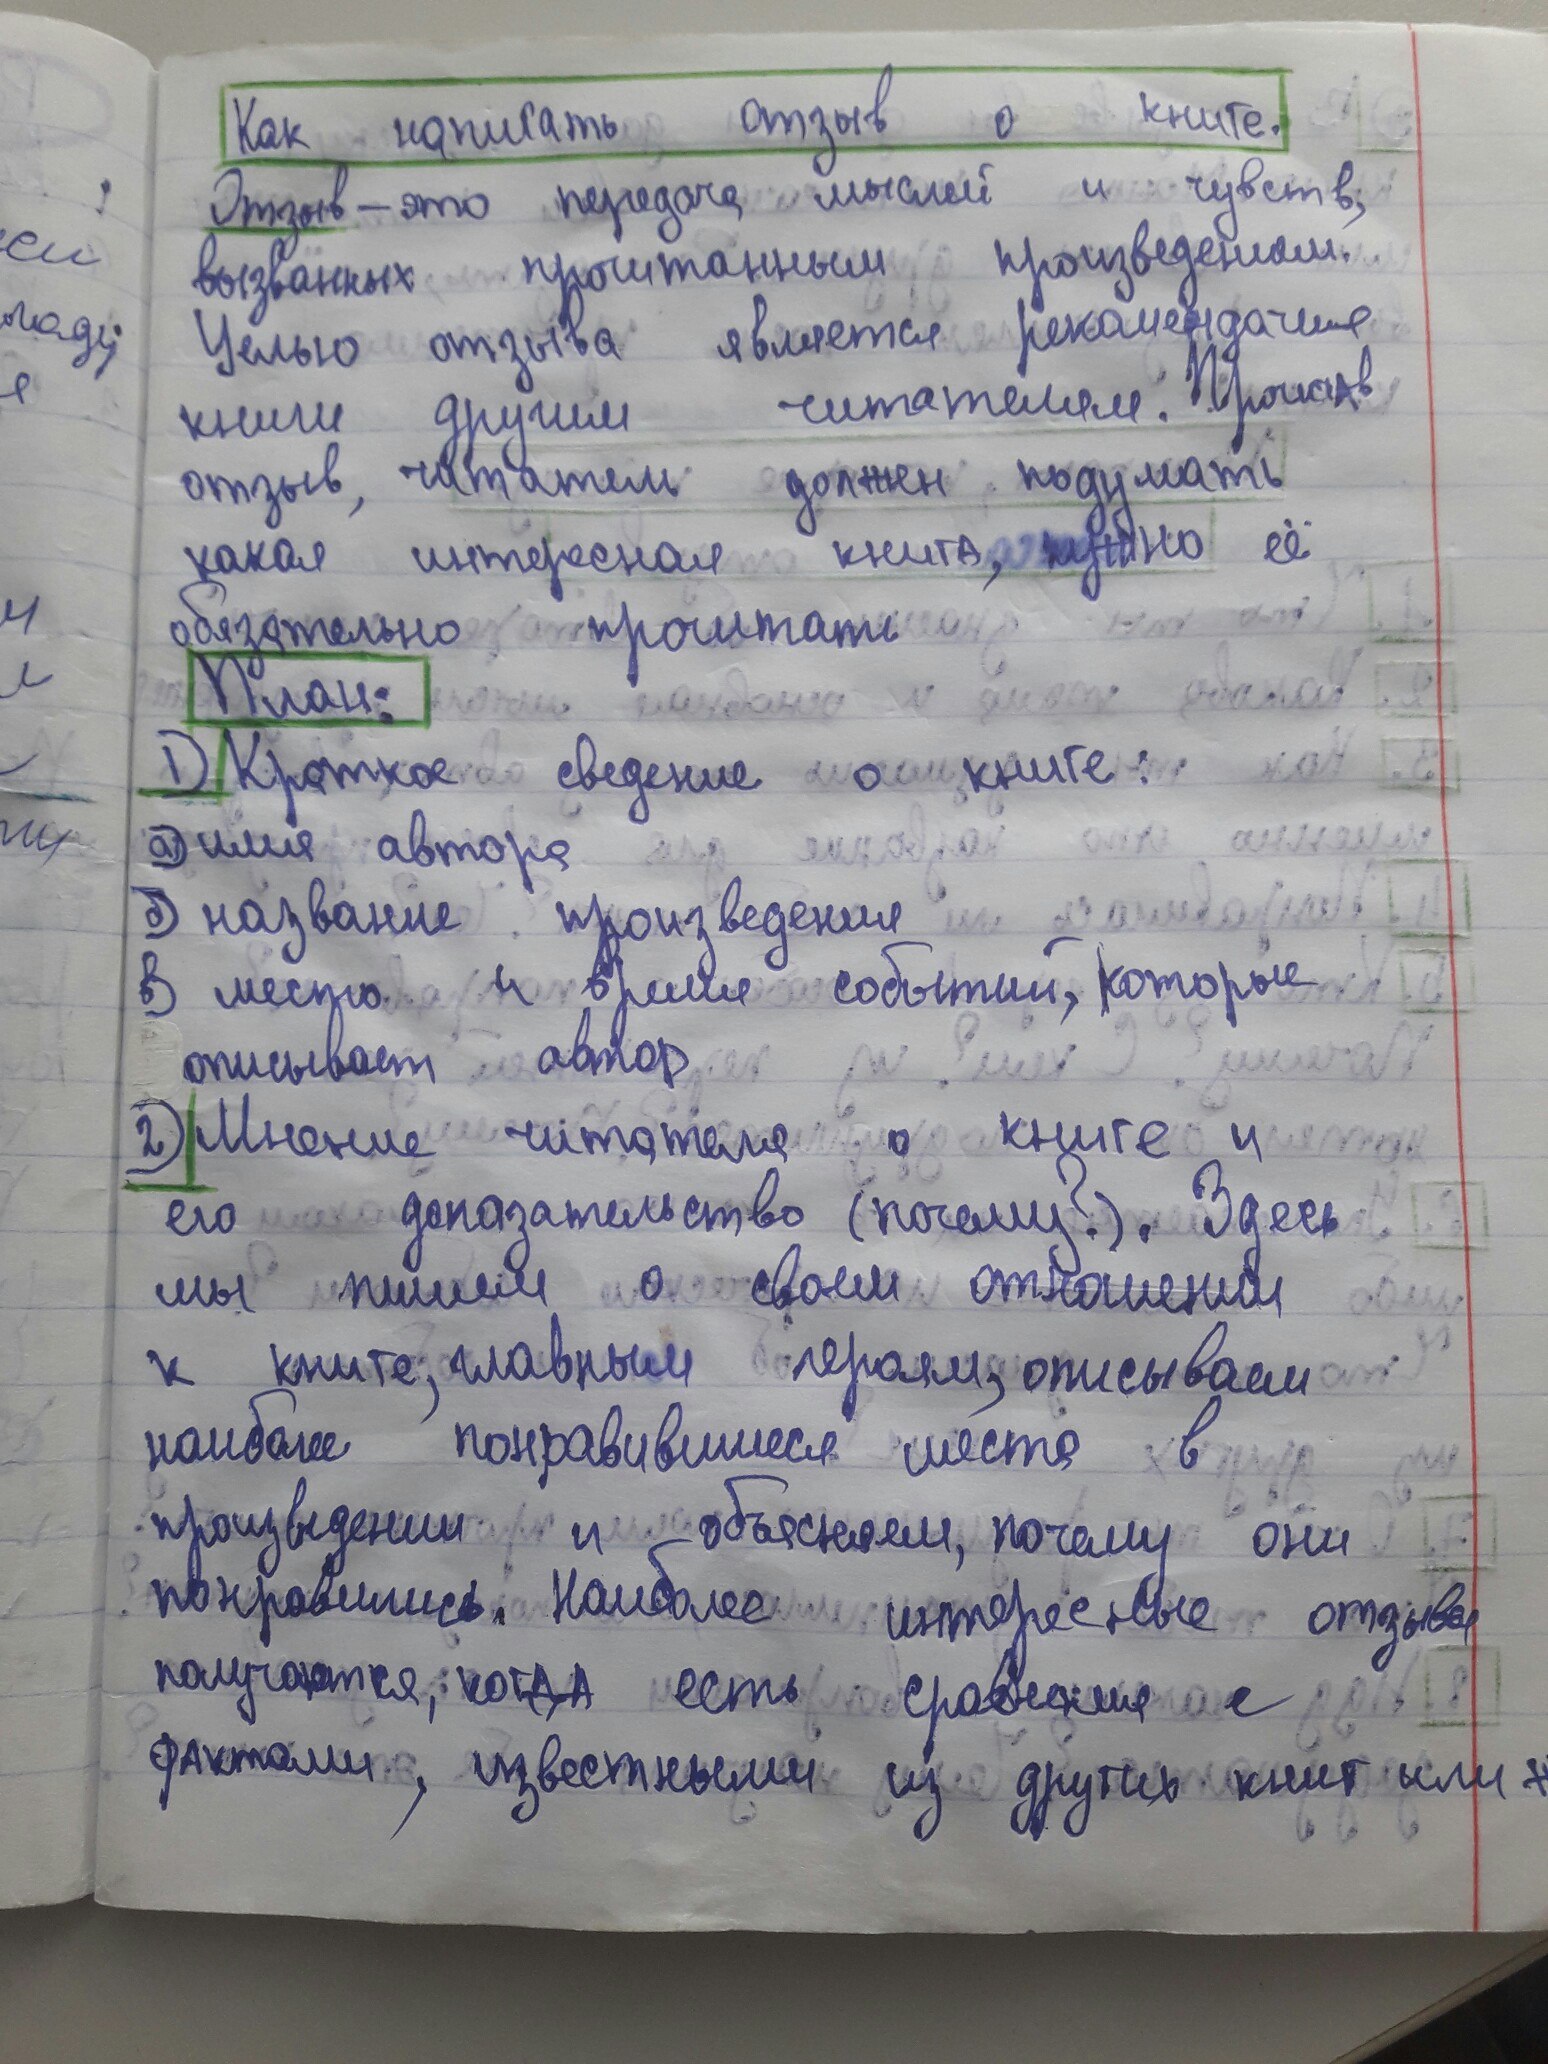 Как написать отзыв о книге.
Отзыв – это передача мыслей и чувств,
вызванных прочитанным произведением.
Целью отзыва является рекомендация
книги другим читателям. Прочитав
отзыв, читатель должен подумать
какая интересная книга, нужно её
обязательно прочитать
План:
1) Краткое сведение о книге:
а) имя автора
б) название произведения
в) место и время событий, которые
описывает автор
2) Мнение читателя о книге и
его доказательство (почему?). Здесь
мы пишем о своем отношении
к книге, главным героям, описываем
наиболее понравившиеся места в
произведении и объясняем, почему они
понравились. Наиболее интересные отзывы
получаются, когда есть сравнения с
фактами, известными из других книг или